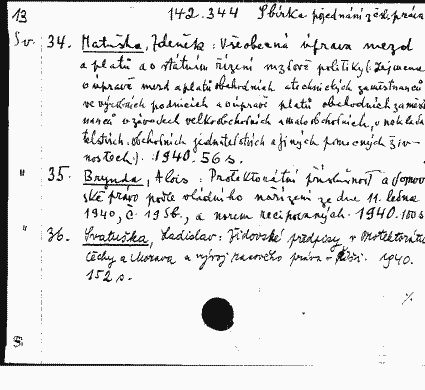 13 142.344 Sbírka pojednání z čsl. práva
Sv. 34. Matuška, Zdeněk: Všeobecná úprava mezd
a platů a o státním řízení mzdové politiky (: Zejmena
o úpravě mezd a platů obchodních a technických zaměstnanců
ve výrobních podnicích a o úpravě platů obchodních zaměst-
nanců v závodech velkoobchodních a maloobchodních, v naklada-
telstvích, obchodních jednatelstvích a jiných pomocných živ-
nostech:). 1940. 56 s.
" 35. Brynda, Alois: Protektorátní příslušnost a domov-
ské právo podle vládního nařízení ze dne 11. ledna
1940, č. 19 Sb., a norem recipovaných. 1940. 100 s
" 36. Svatuška, Ladislav: Židovské předpisy v Protektorátu
Čechy a Morava a vývoj rasového práva v Říši. 1940.
152 s.